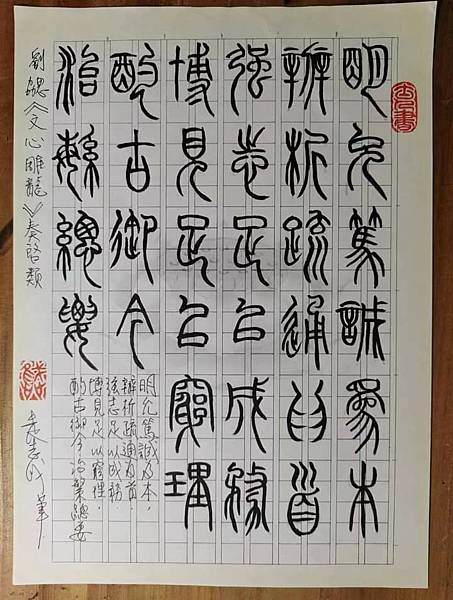 明允篤誠為本
辨析疏通為首
強志足以成務
博見足以窮理
酌古御今
治繁總要
明允篤誠為本，
辨析疏通為首
強志足以成務．
博見足以窮理．
酌古御今治繁總要
劉勰《文心雕龍》奏啓類